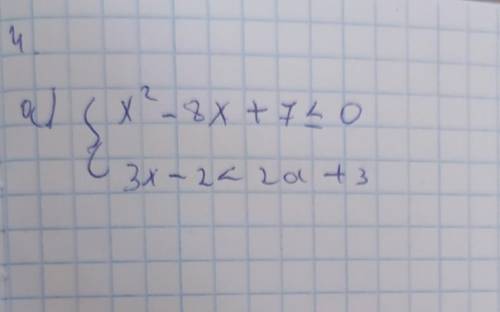 4.
a) { x² - 8x + 7 ≤ 0
3x - 2 < 2a + 3